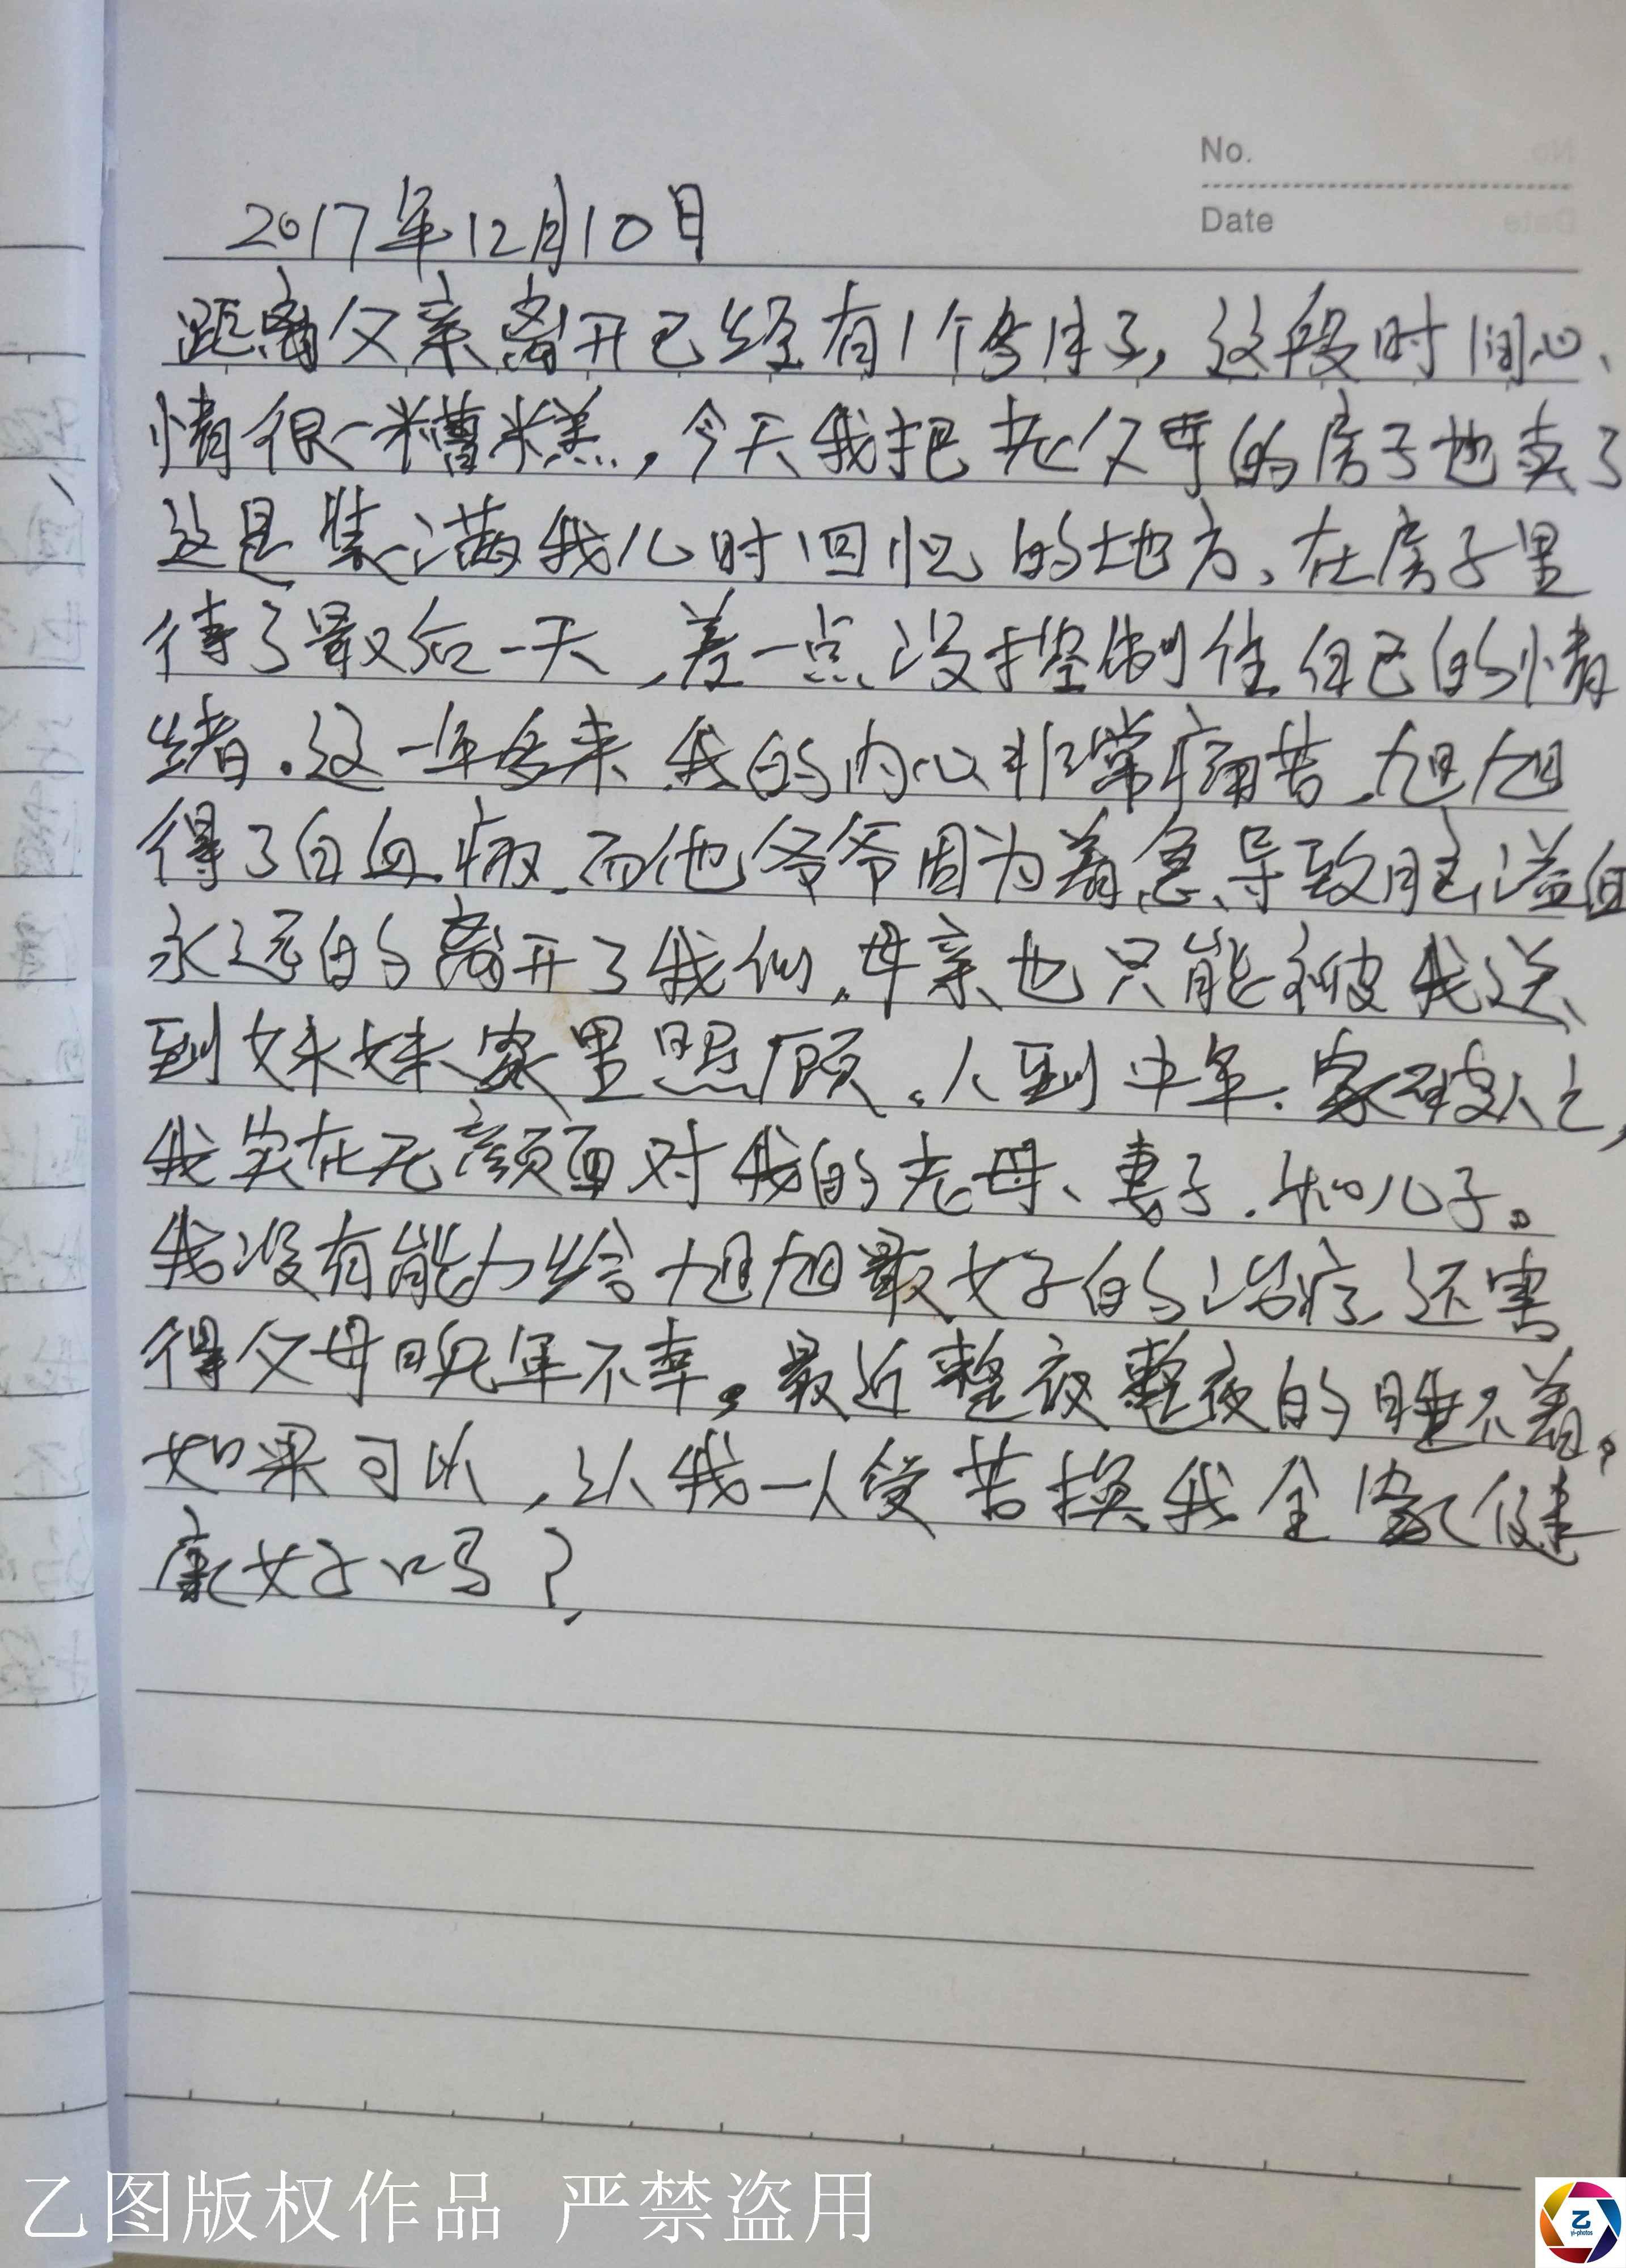 No.
Date
2017年12月10日
距离父亲离开已经有1个多月了，这段时间心
情很糟糕，今天我把老父母的房子也卖了
这是装满我儿时回忆的地方、在房子里
待了最后一天，差一点没控制住自己的情
绪。这一年多来我的内心非常痛苦，旭旭
得了白血病，而他爷爷因为着急导致脑溢血
永远的离开了我们，母亲也只能被我送
到妹妹家里照顾。人到中年．家破人亡，
我实在无颜面对我的老母、妻子．和儿子。
我没有能力给旭旭最好的治疗，还害
得父母晚年不幸。最近整夜整夜的睡不着。
如果可以，让我一人受苦换我全家健
康好吗？
乙图版权作品 严禁盗用
乙
yi-photos